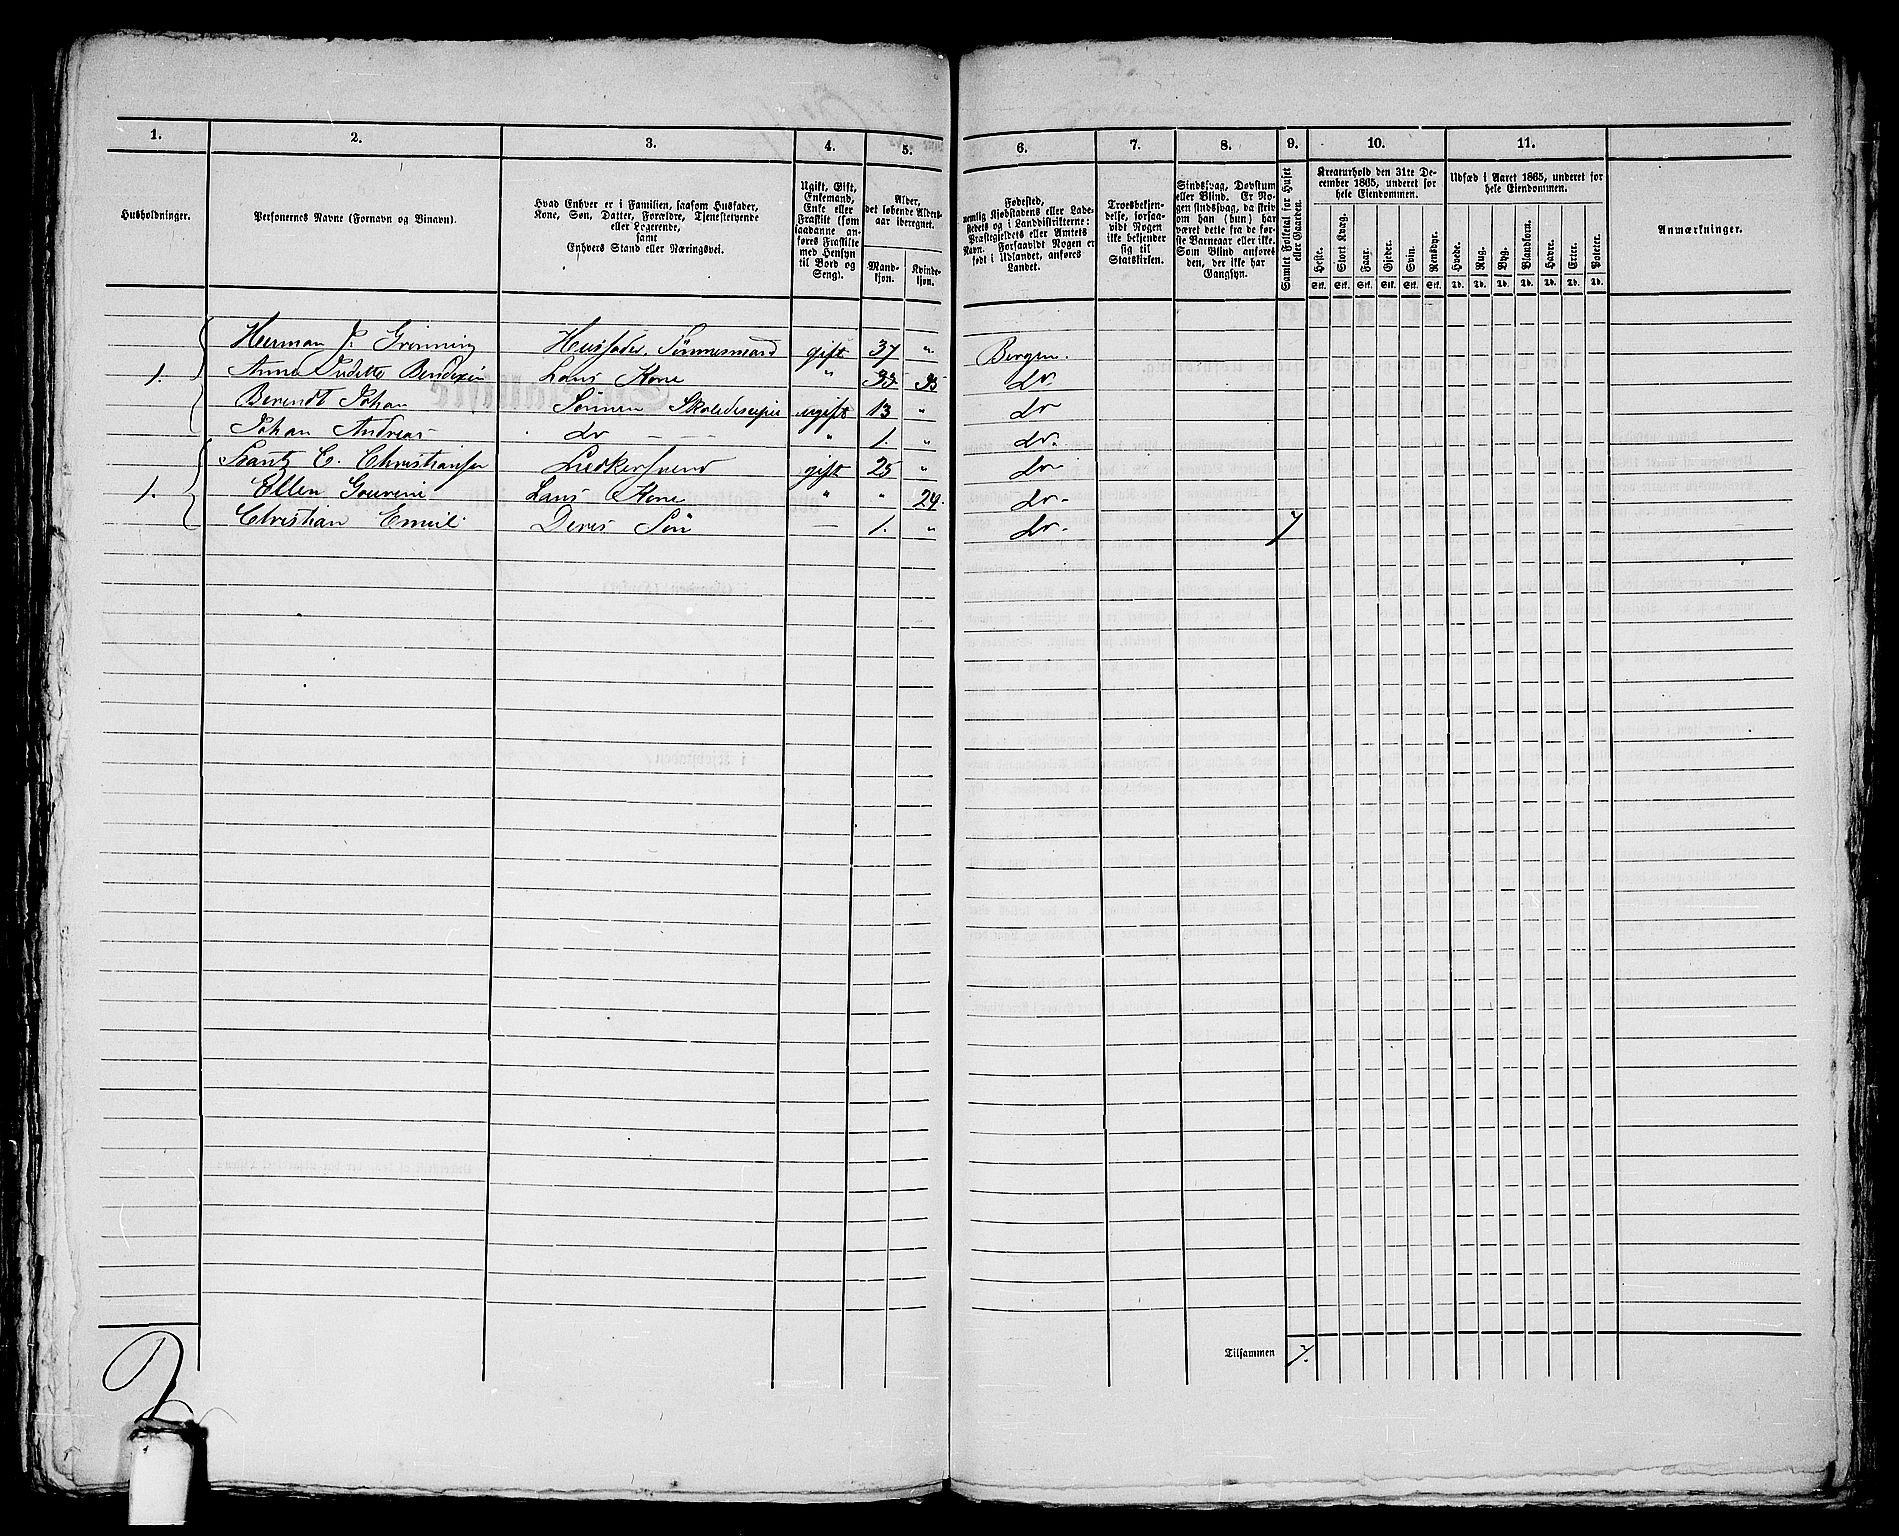 1. 2. 3. 4. 5. 6. 7. 8. 9. 10. 11.
Husholdninger.
Personernes Navne (Fornavn og Binavn).
Hvad Enhver er i Familien, saasom Husfader,
Kone, Søn, Datter, Forældre, Tjenestetyende
eller Logerende,
samt
Enhvers Stand eller Næringsvei.
Ugift, Gift,
Enkemand,
Enke eller
Fraskilte (som
saadanne an-
føres Fraskilte
med Hensyn
til Bord og
Seng).
Alder,
det løbende Alders-
aar iberegnet.
Mand-
kjøn.
Kvinde-
kjøn.
Fødested,
nemlig Kjøbstadens eller Lade-
stedets og i Landdistrikterne:
Præstegjeldets eller Amtets
Navn. Forsaavidt Nogen er
født i Udlandet, anføres
Landet.
Troesbekjen-
delse, forsaa-
vidt Nogen
ikke bekjender
sig til
Statskirken.
Sindssvag, Døvstum
eller Blind. Er No-
gen sindssvag, da skriv
om han (hun) har
været dette fra de før-
ste Barneaar eller ikke.
Som Blind anføres
den, der ikke har
Gangsyn.
Samlet Folketal for Huset
eller Gaarden.
Kreaturhold den 31te De-
cember 1865, underet for
hele Eiendommen.
Heste. Stort Kvæg. Faar. Gjeder. Svin. Rensdyr.
Stk. Stk. Stk. Stk. Stk. Stk.
Udsæd i Aaret 1865, underet for
hele Eiendommen.
Hvede. Rug. Byg. Blandkorn. Havre. Erter. Poteter.
Td. Td. Td. Td. Td. Td. Td.
Anmærkninger.
Herman J: Grønning Husfader, Tømmermand gift 37 " Bergen.
1. Anne Bendixen Hans Kone " 33 35 do
Berendt Johan Sønnen Skolediscipel ugift 13 " do
Johan Andreas do " 1. " do.
C. Christiansen gift 25 " do
1. Ellen Hans Kone " " 24. do
Christian Emil Deres Søn 1. " do 7
Tilsammen 7.
2